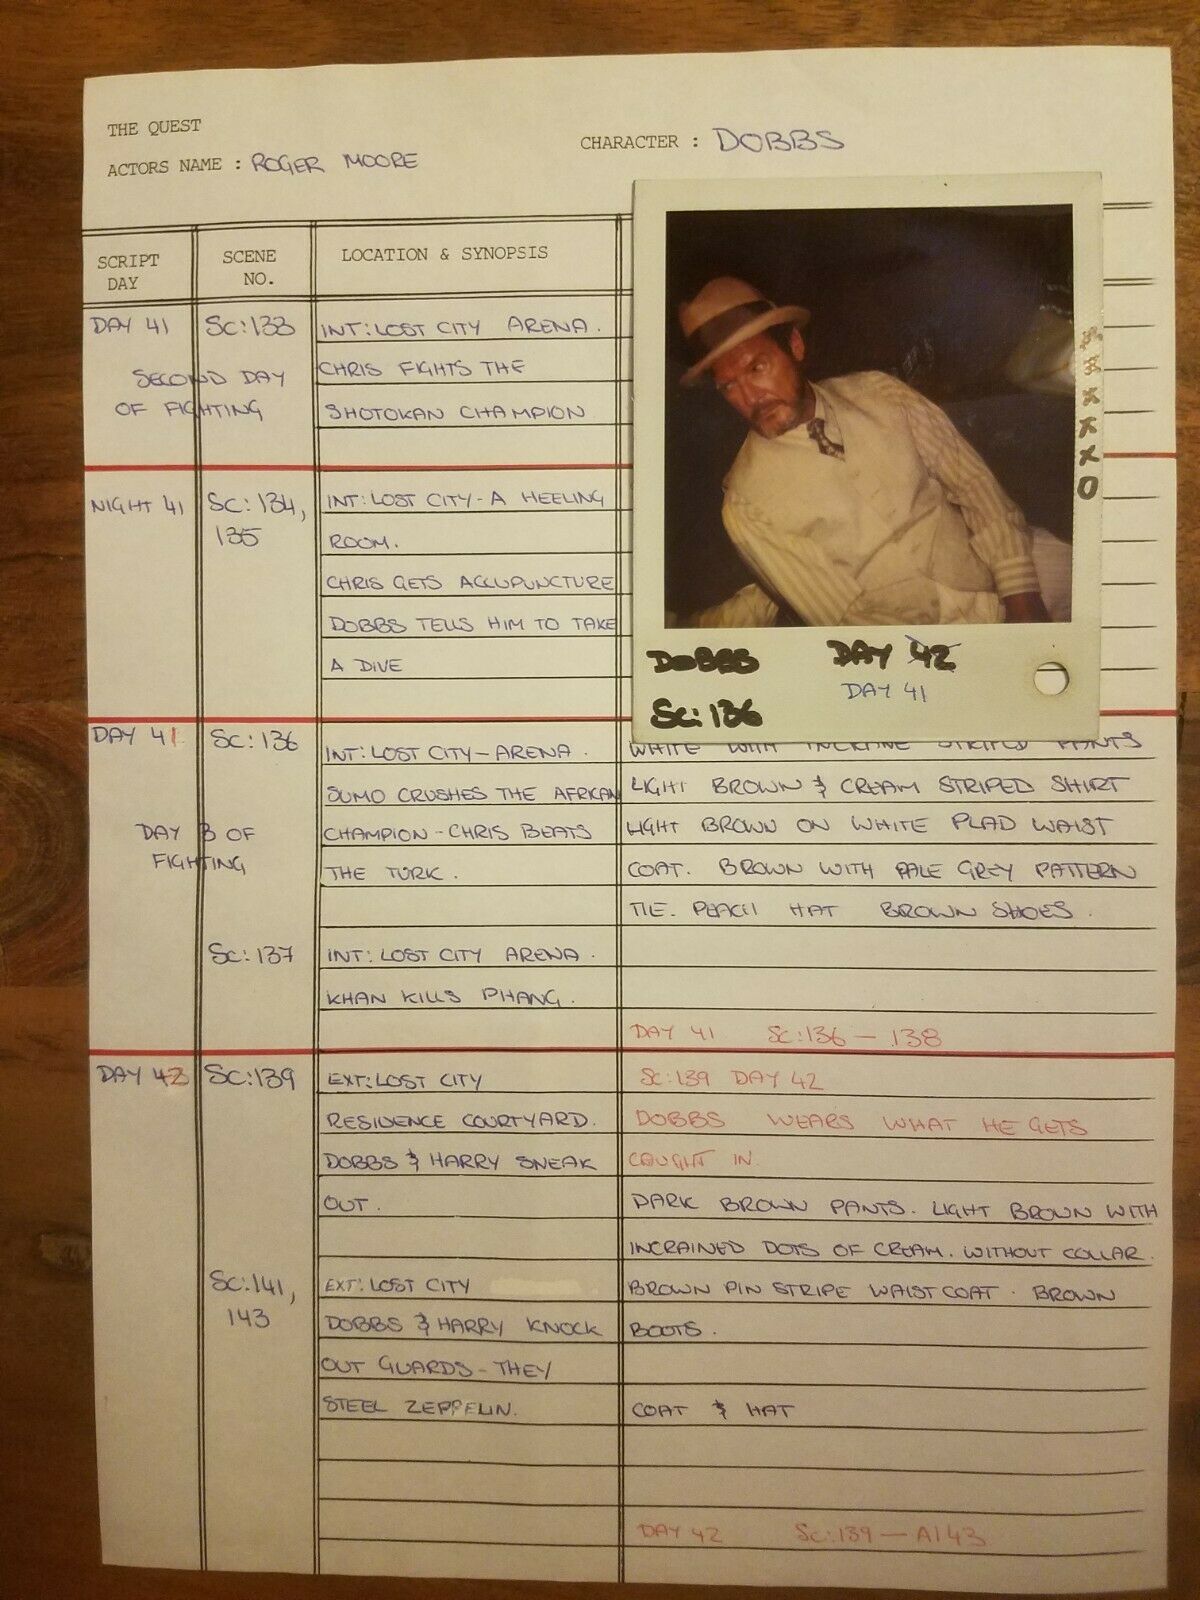 THE QUEST
ACTORS NAME : ROGER MOORE
CHARACTER : DOBBS
SCRIPT DAY
SCENE NO.
LOCATION & SYNOPSIS
DAY 41
SECOND DAY
OF FIGHTING
SC:133
INT: LOST CITY ARENA.
CHRIS FIGHTS THE
SHOTOKAN CHAMPION
NIGHT 41
SC: 134,
135
INT: LOST CITY - A HEELING
ROOM.
CHRIS GETS ACCUPUNCTURE
DOBBS TELLS HIM TO TAKE
A DIVE
DOBBS DAY 42
DAY 41
SC: 136
DAY 41
DAY 3 OF
FIGHTING
SC: 136
INT: LOST CITY - ARENA.
SUMO CRUSHES THE AFRICAN
CHAMPION - CHRIS BEATS
THE TURK.
WHITE WITH STRIPED PANTS
LIGHT BROWN & CREAM STRIPED SHIRT
LIGHT BROWN ON WHITE PLAD WAIST
COAT. BROWN WITH PALE GREY PATTERN
TIE. PEACH HAT BROWN SHOES.
SC: 137
INT: LOST CITY ARENA.
KHAN KILLS PHANG.
DAY 41 SC:136 - 138
DAY 42
SC:139
EXT: LOST CITY
RESIDENCE COURTYARD.
DOBBS & HARRY SNEAK
OUT.
SC:139 DAY 42
DOBBS WEARS WHAT HE GETS
CAUGHT IN.
DARK BROWN PANTS. LIGHT BROWN WITH
INCRAINED DOTS OF CREAM. WITHOUT COLLAR.
BROWN PIN STRIPE WAISTCOAT. BROWN
BOOTS.
SC:141,
143
EXT: LOST CITY
DOBBS & HARRY KNOCK
OUT GUARDS - THEY
STEEL ZEPPELIN.
COAT & HAT
DAY 42 SC:139 - A143